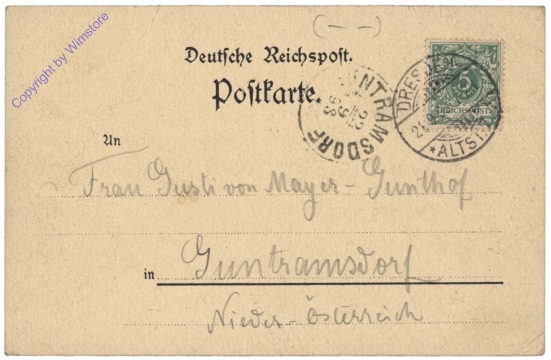 Copyright by Wimstore
(— —)
Deutsche Reichspost.
Postkarte.
GUNTRAMSDORF
DRESDEN
ALTST.
5
REICHSPOST
An
Frau Gusti von Mayer-Gunthof
in Guntramsdorf
Nieder-Österreich